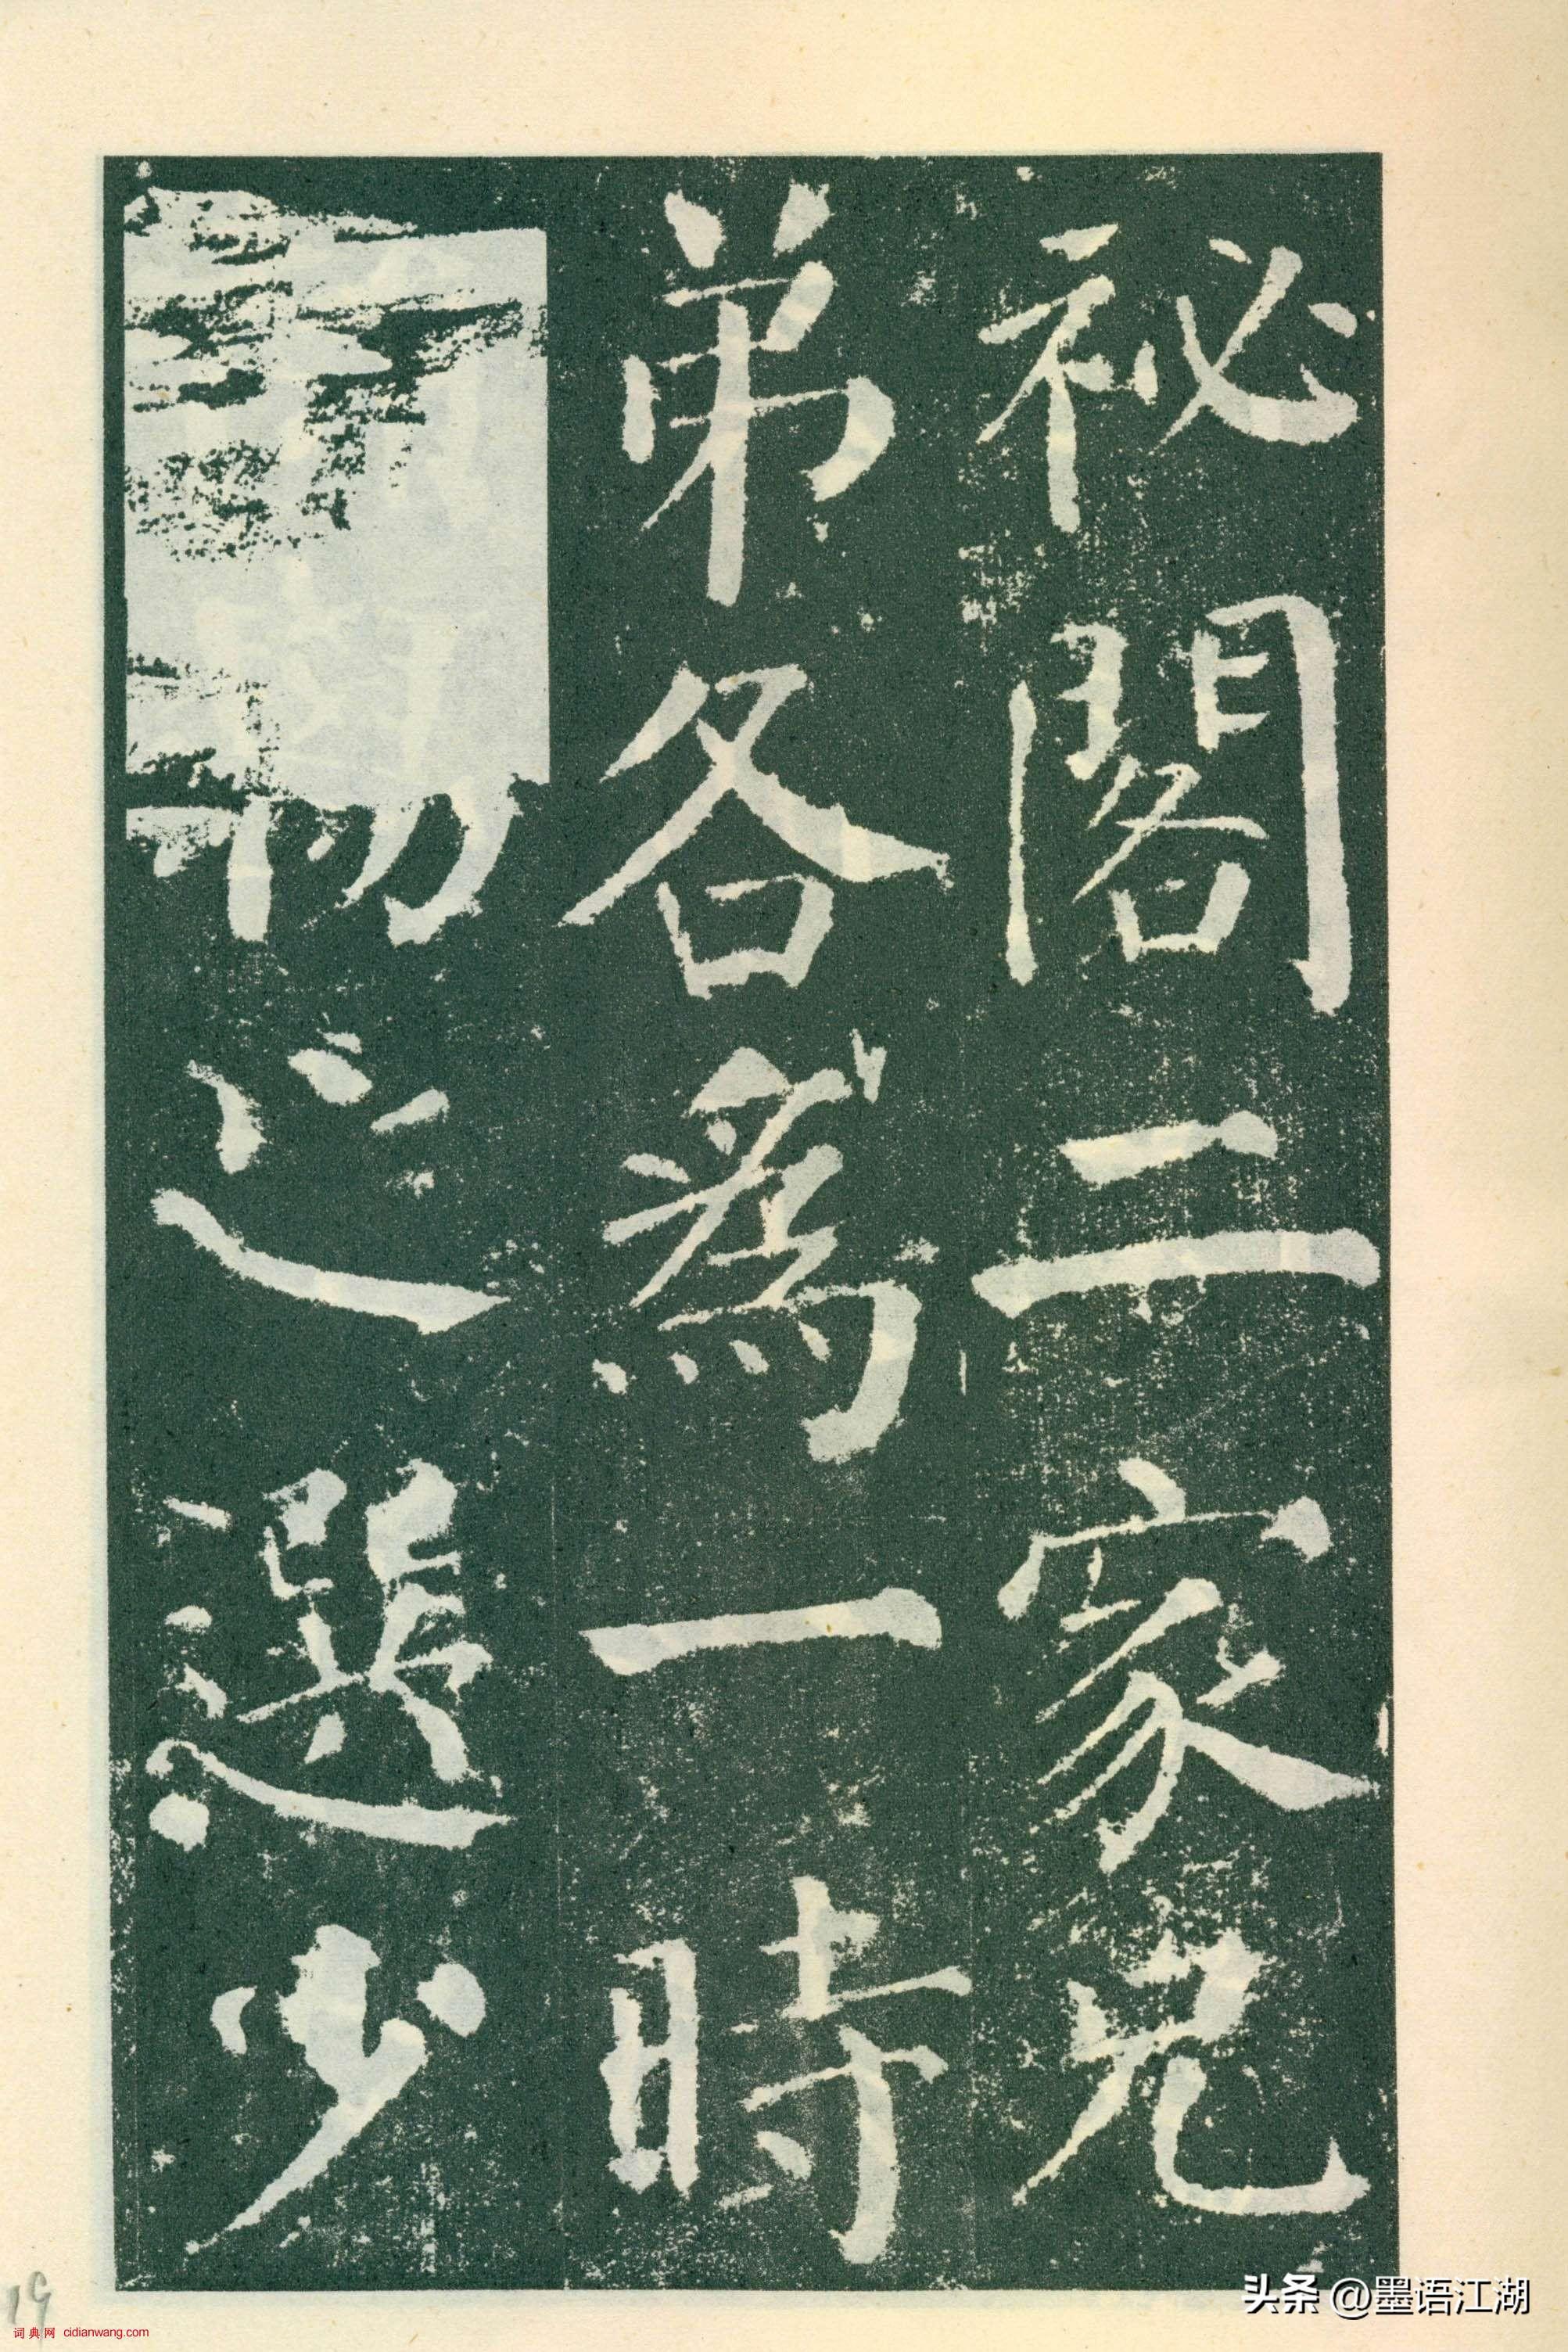 祕閣二家兄
弟各爲一時
之選少
19
词典网 cidianwang.com
头条 @墨语江湖